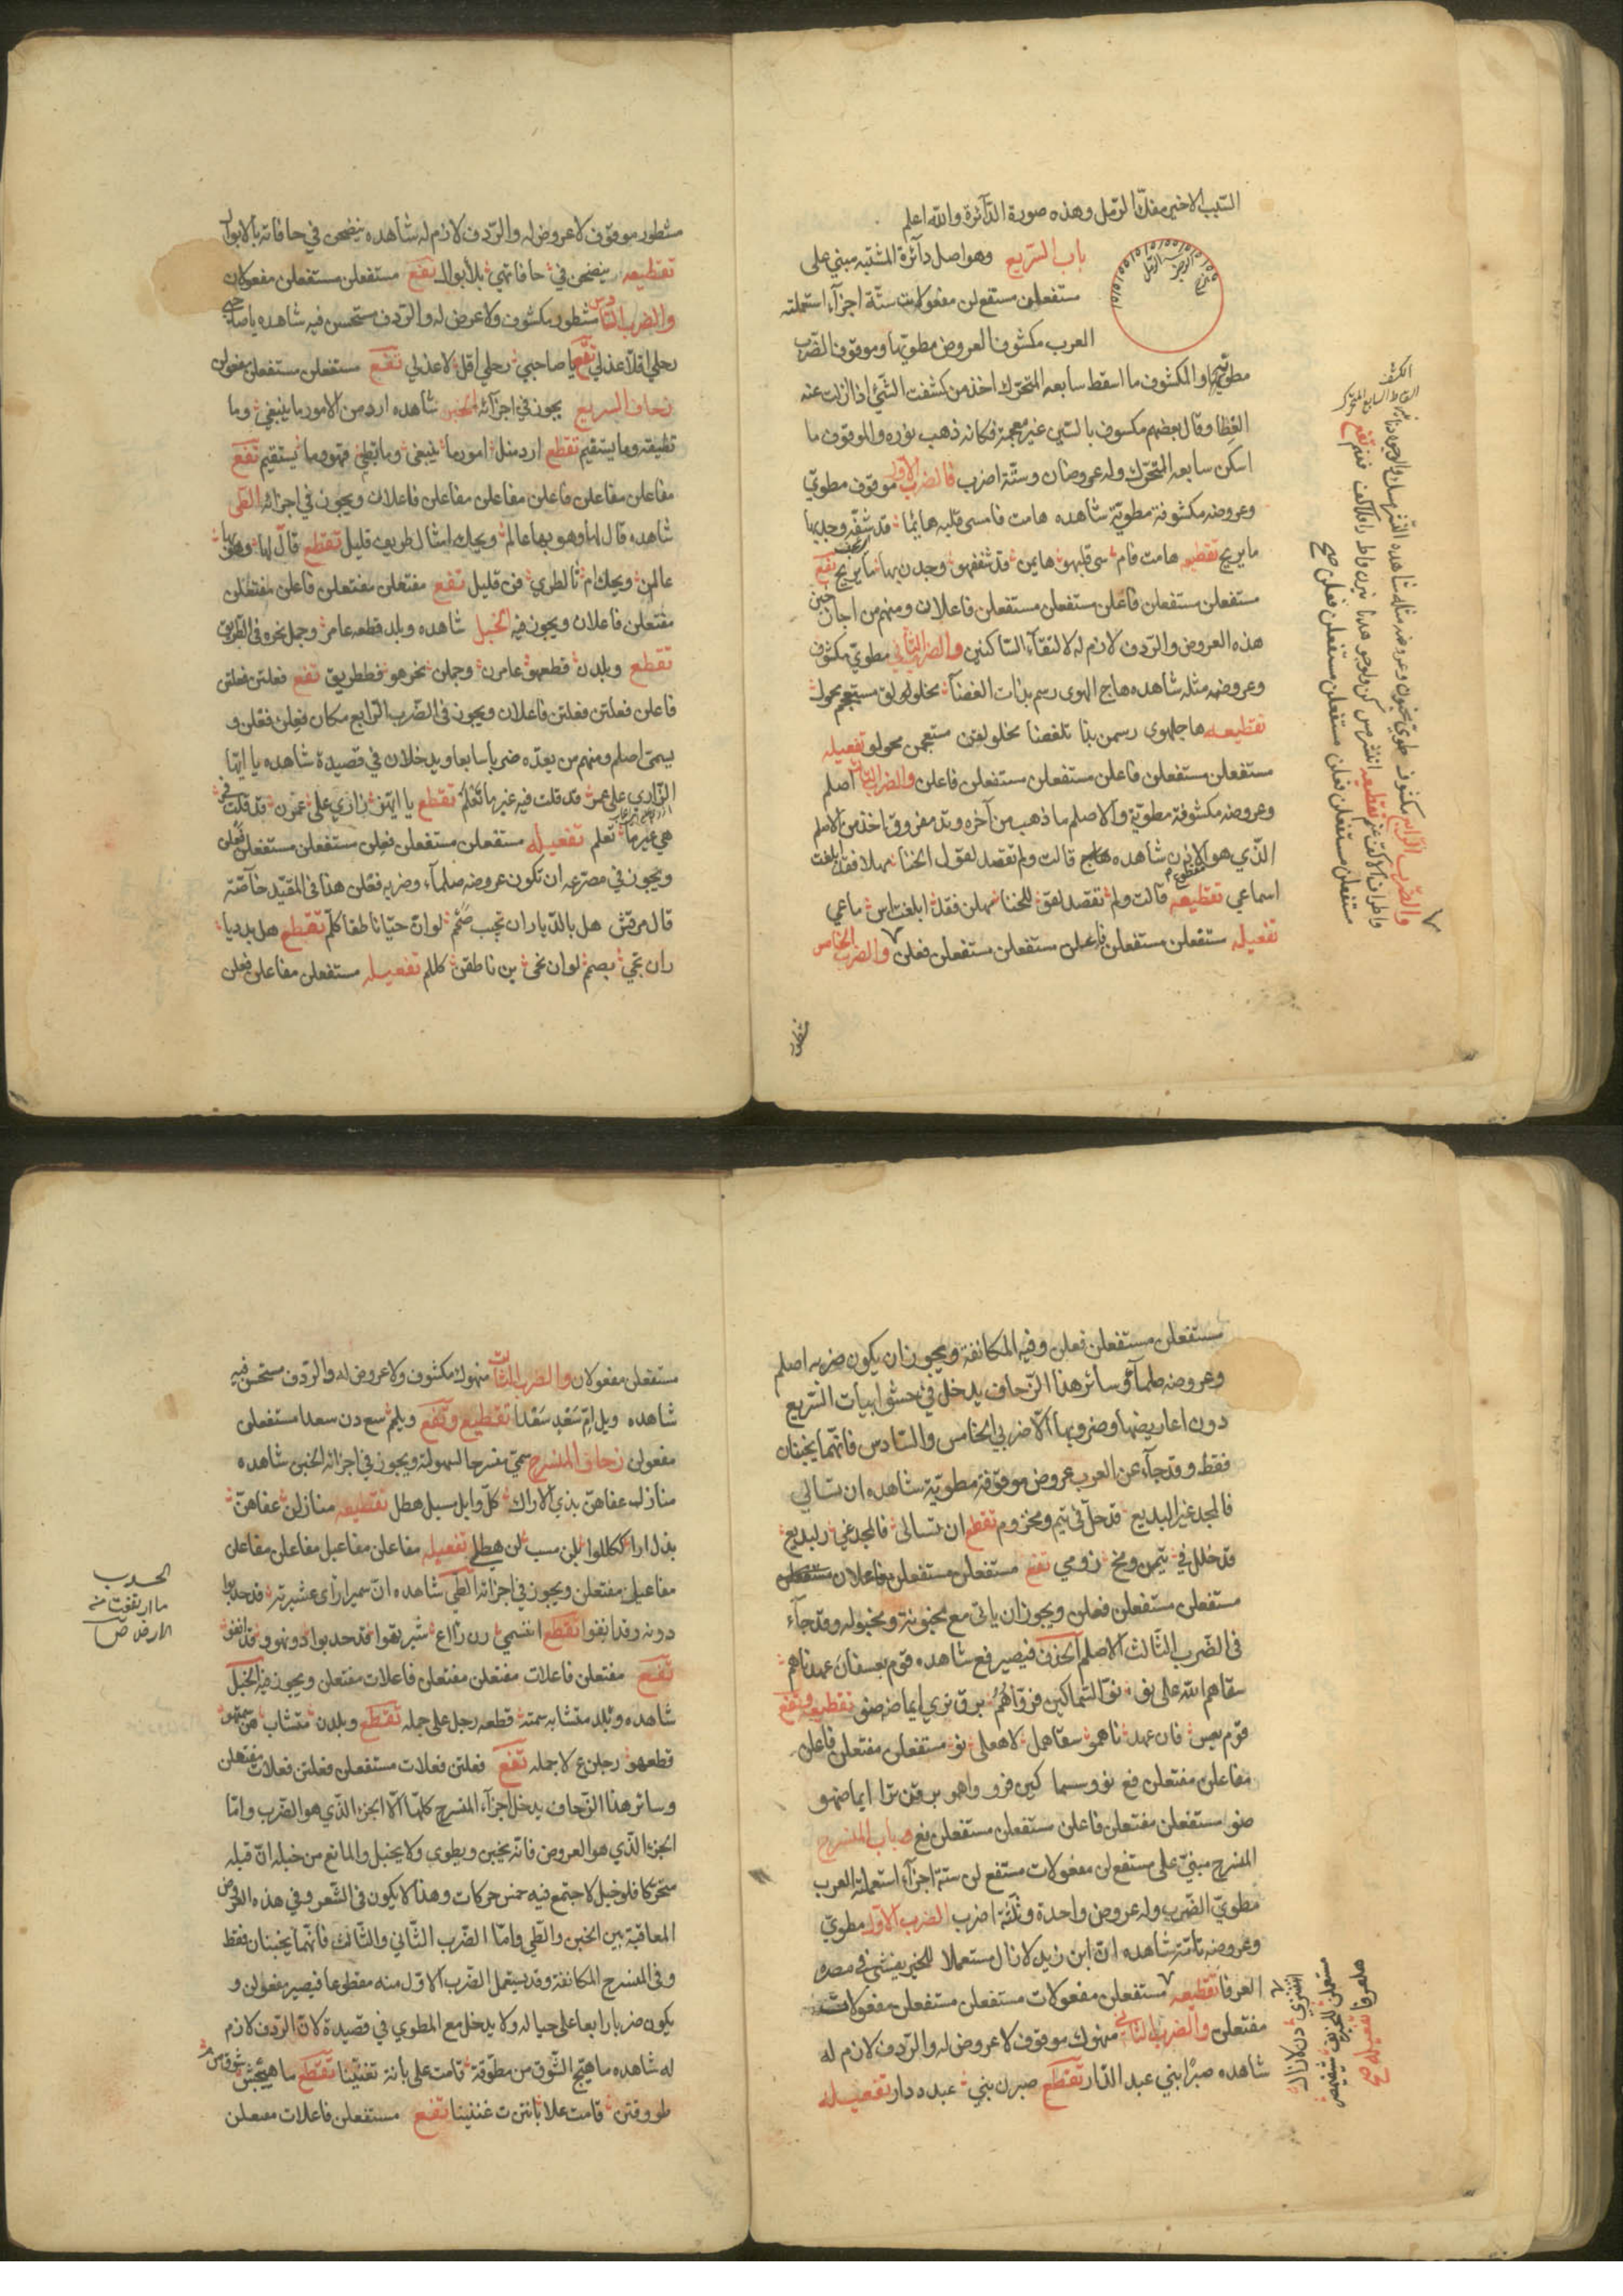 السبب الاخير مفك الرمل وهذه صورة الدآئرة والله اعلم
باب السريع وهو اصل دآئرة المشتبه مبني على
مستفعلن مستفعلن مفعولات ستة اجزآء استعملته
العرب مكشوف العروض مطويها وموقوف الضرب
مطويه والمكشوف ما اسقط سابعه المتحرك اخذ من كشفت الشئ اذا ازلت عنه
الغطا وقال بعضهم مكسوف بالسين غير معجمة فكانه ذهب نوره والموقوف ما
اسكن سابعه المتحرك وله عروضان وستة اضرب فالضرب الاول موقوف مطوي
وعروضه مكشوفة مطوية شاهده هامت فامسى قلبه هايما قد شفه وجد بها
ما يريح تقطيعه هامت فام سى قلبهو هايمن قد شففهو وجدن بها ما يريح تفع
مستفعلن مستفعلن فاعلن مستفعلن مستفعلن فاعلان ومنهم من اجاز خبن
هذه العروض والردف لازم له لالتقآء الساكنين والضرب الثاني مطوي مكشوف
وعروضه مثله شاهده هاج الهوى رسم بذات الغضآ مخلولق مستعجم محول
تقطيعه هاجلهوى رسمن بذا تلغضا مخلولقن مستعجمن محولو تفعيله
مستفعلن مستفعلن فاعلن مستفعلن مستفعلن فاعلن والضرب الثالث اصلم
وعروضه مكشوفة مطوية والاصلم ما ذهب من آخره وتد مفروق اخذ من الاصلم
الذي هو مقطوع الاذن شاهده قالت ولم تقصد لقول الخنا مهلا فقد ابلغت
اسماعي تقطيعه قالت ولم تقصد لقي للخنا مهلن فقد ابلغت اس ماعي
تفعيله مستفعلن مستفعلن فاعلن مستفعلن مستفعلن فعلن والضرب الخامس
مشطور
الكشف
اسقاط السابع المتحرك
والضرب الرابع مكشوف مطوي مخبون وعروضه مثله شاهده النشر مسك والوجوه دنانير
واطراف الاكف عنم تقطيعه اننشر مس كن ولوجو هدنا نيرن واط رافلاكف فعنم تفع
مستفعلن مستفعلن فعلن مستفعلن مستفعلن فعلن صح
مشطور موقوف لا عروض له والردف لازم له شاهده ينضحن في حافاته بالابوال
تقطيعه ينضحن في حافاتهي بلابوال تفع مستفعلن مستفعلن مفعولان
والضرب السادس مشطور مكشوف ولا عروض له والردف مستحسن فيه شاهده يا صاحبي
رحلي اقلا عذلي تقع يا صاحبي رحلي اقل لا عذلي تفع مستفعلن مستفعلن مفعولن
زحاف السريع يجوز في اجزآئه الخبن شاهده ارد من الامور ما ينبغي وما
تطيقه وما يستقيم تقطع ارد منل امورما ينبغي وما تطي قهو وما يستقيم تفع
مفاعلن مفاعلن فاعلن مفاعلن مفاعلن فاعلان ويجوز في اجزائه الطي
شاهده قال لها وهو بها عالم ويحك امثال طريف قليل تقطع قال لها وهو بها
عالمن ويحك ام ثا لطري فن قليل تفع مفتعلن مفتعلن فاعلن مفتعلن
مفتعلن فاعلان ويجوز فيه الخبل شاهده وبلد قطعه عامر وجمل نحره في الطريق
تقطع وبلدن قطعهو عامرن وجملن نحرهو فططريق تفع فعلتن فعلتن
فاعلن فعلتن فعلتن فاعلان ويجوز في الضرب الرابع مكان فعلن فعلن و
يسمى اصلم ومنهم من يعده ضربا سابعا ويدخلان في قصيدة شاهده يا ايها
الزاري على عمر قد قلت فيه غير ما تعلم تقطع يا ايهز زاري على عمرن قد قلت في
هي غير ما تعلم تفعيله مستفعلن مستفعلن فعلن مستفعلن مستفعلن فعلن
ويجوز في مصرعه ان تكون عروضه صلمآء وضربه فعلن هذا في المقيد خآصة
قال مرقش هل بالديار ان تجيب صمم لو ان حيا ناطقا كلم تقطع هل بدديا
ران تجي بصمم لو ان حي ين ناطقن كللم تفعيله مستفعلن مفاعلن فعلن
مستفعلن مستفعلن فعلن وفيه المكانفة ويجوز ان يكون ضربه اصلم
وعروضه صلمآء وسائر هذا الزحاف يدخل في حشو ابيات السريع
دون اعاريضها وضروبها الا ضربي الخامس والسادس فانهما يخبنان
فقط وقد جآء عن العرب عروض موقوفة مطوية شاهده ان تسالي
فالمجد غير البديع قد حل في تيم ومخزوم تقطع ان تسالي فالمجد غي رلبديع
قد حلل في تيمن ومخ زومي تفع مستفعلن مستفعلن فاعلان
مستفعلن مستفعلن فعلن ويجوز ان ياتي مع مخبونة ومخبوله وقد جآء
في الضرب الثالث الاصلم الحذف فيصير فع شاهده قوم بعسفان عهدناهم
سقاهم الله على نو نو السماكين فرواهم برق ترى ايماضه ضو تقطيعه وتفع
قوم بعس فان عهد ناهمو سقاهمل لاهعلى نو مستفعلن مفتعلن فاعلن
مفاعلن مفتعلن فع نووسسما كين فرو واهمو برقن ترا ايماضهو
ضو مستفعلن مفتعلن فاعلن مستفعلن مستفعلن فع باب المنسرح
المنسرح مبني على مستفعلن مفعولات مستفعلن ستة اجزآء استعملته العرب
مطوي الضرب وله عروض واحدة وثلثة اضرب الضرب الاول مطوي
وعروضه تآمة شاهده ان ابن زيد لا زال مستعملا للخير يفشي في مصره
العرفا تقطيعه مستفعلن مفعولات مستفعلن مستفعلن مفعولات
مفتعلن والضرب الثاني منهوك موقوف لا عروض له والردف لازم له
شاهده صبرا بني عبد الدار تقطع صبرن بني عبدددار تفعيله
اننبنزي دن لا زال
مستعملن للخير يف شي في مص
هلعرفا تفعيله صح
مستفعلن مفعولان والضرب الثالث منهوك مكشوف ولا عروض له والردف مستحسن فيه
شاهده ويل ام سعد سعدا تقطيع وتفع ويلم سع دن سعدا مستفعلن
مفعولن زحاف المنسرح سمي منسرحا لسهولته ويجوز في اجزائه الخبن شاهده
منازل عفاهن بذي الاراك كل وابل مسبل هطل تقطيعه منازلن عفاهن
بذل ارا ككللوا بلن مسب لن هطلي تفعيله مفاعلن مفاعيل مفاعلن مفاعلن
مفاعيل مفتعلن ويجوز في اجزائه الطي شاهده ان سميرا رآى عشيرته قد حدبوا
دونه وقد انفوا تقطع اننسمي رن رآاع شيرتهوا قد حدبوا دونهو و قد انفو
تفع مفتعلن فاعلات مفتعلن مفتعلن فاعلات مفتعلن ويجوز فيه الخبل
شاهده وبلد متشابه سمته قطعه رجل على جمله تقطع وبلدن متشاب هن سمتهو
قطعهو رجلن ع لا جمله تفع فعلتن فعلات مستفعلن فعلتن فعلات مفتعلن
وسائر هذا الزحاف يدخل اجزآء المنسرح كلها الا الجزء الذي هو الضرب واما
الجزء الذي هو العروض فانه يخبن ويطوى ولا يخبل والمانع من خبله ان قبله
متحركا فلو خبل لاجتمع فيه خمس حركات وهذا لا يكون في الشعر وفي هذه العروض
المعاقبة بين الخبن والطي واما الضرب الثاني والثالث فانهما يخبنان فقط
وفي المنسرح المكانفة وقد يستعمل الضرب الاول منه مقطوعا فيصير مفعولن و
يكون ضربا رابعا على حياله ولا يدخل مع المطوي في قصيدة لان الردف لازم
له شاهده ما هيج الشوق من مطوقة قامت على بانة تغنينا تقطع ما هييجش شوق من
طووقتن قامت علا بانتن ت غننينا تفع مستفعلن فاعلات مفتعلن
الحدب
ما ارتفعت من
الارض ص